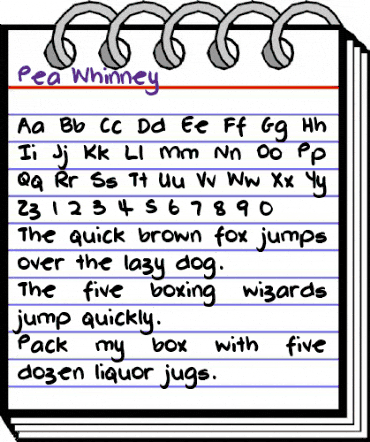 Pea Whinney
Aa Bb Cc Dd Ee Ff Gg Hh
Ii Jj Kk Ll Mm Nn Oo Pp
Qq Rr Ss Tt Uu Vv Ww Xx Yy
Zz 1 2 3 4 5 6 7 8 9 0
The quick brown fox jumps
over the lazy dog.
The five boxing wizards
jump quickly.
Pack my box with five
dozen liquor jugs.